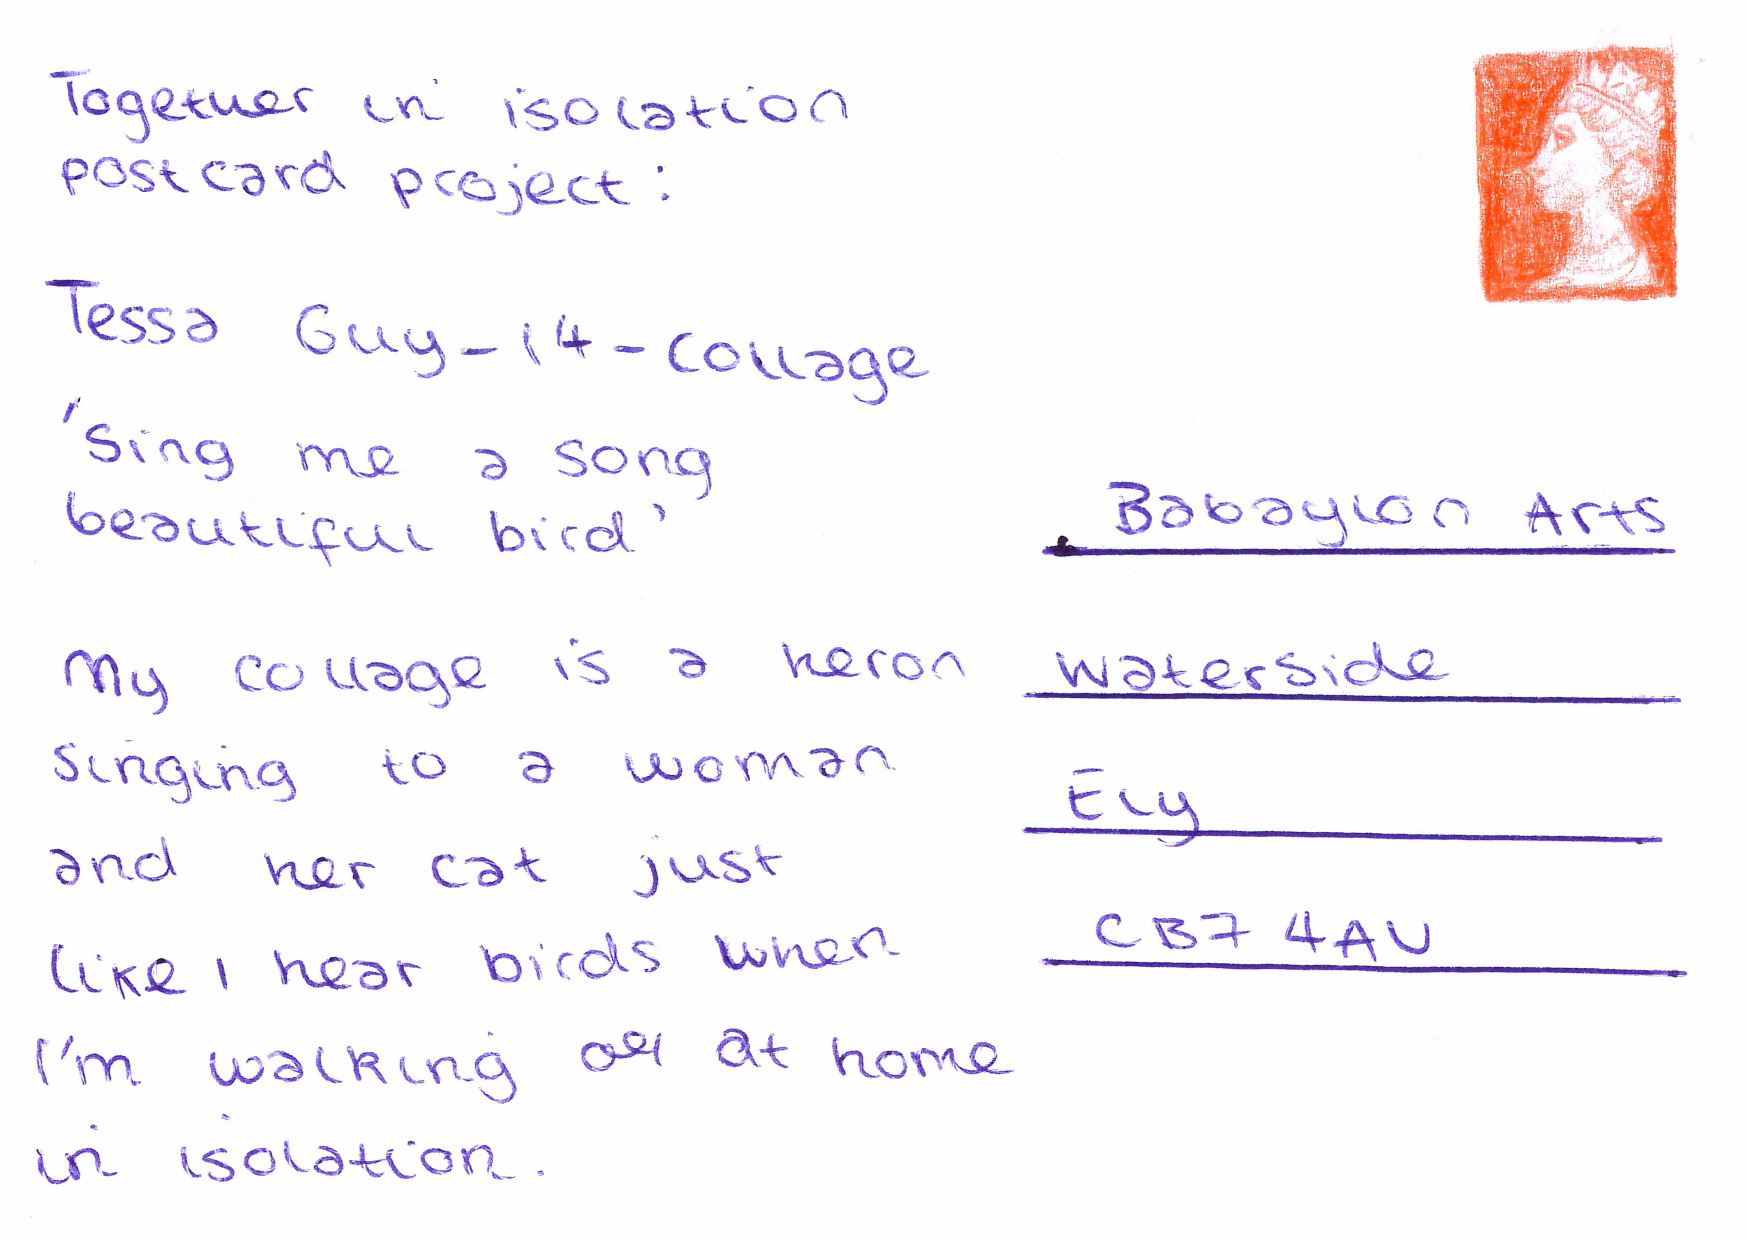 Together in isolation
postcard project:
Tessa Guy - 14 - collage
'Sing me a song
beautiful bird'
My collage is a heron
singing to a woman
and her cat just
like I hear birds when
I'm walking or at home
in isolation.
Babaylon Arts
Waterside
Ely
CB7 4AU